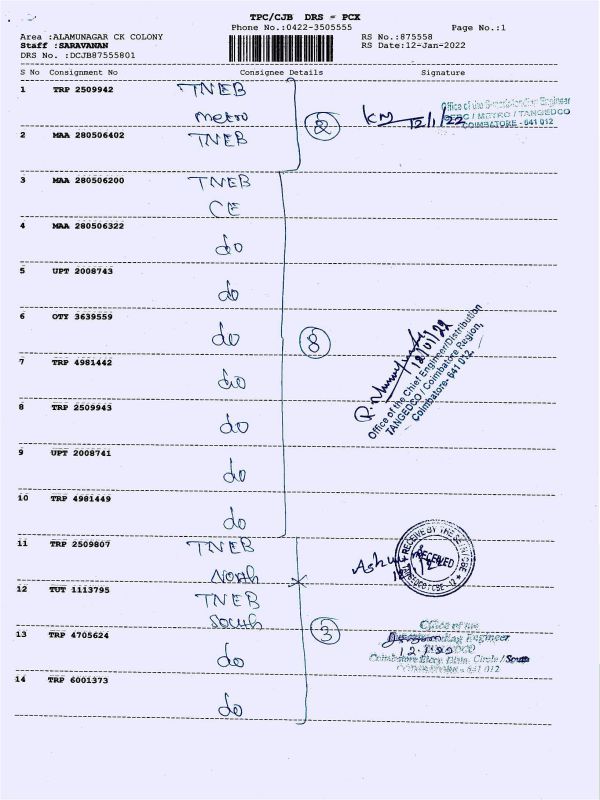 TPC/CJB DRS - PCX
Phone No.:0422-3505555 Page No.:1
Area :ALAMUNAGAR CK COLONY RS No.:875558
Staff :SARAVANAN RS Date:12-Jan-2022
DRS No. :DCJB87555801
S No Consignment No Consignee Details Signature
1 TRP 2509942 TNEB
Metro
2 MAA 280506402 TNEB
2
12/1/22
METRO / TANGEDCO
COIMBATORE - 641 012
3 MAA 280506200 TNEB
CE
4 MAA 280506322 do
5 UPT 2008743 do
6 OTY 3639559 do
7 TRP 4981442 do
8 TRP 2509943 do
9 UPT 2008741 do
10 TRP 4981449 do
8
12/01/22
Office of the Chief Engineer/Distribution
TANGEDCO / Coimbatore Region,
Coimbatore- 641 012.
11 TRP 2509807 TNEB
North
RECEIVED
12 TUT 1113795 TNEB
South
13 TRP 4705624 do
14 TRP 6001373 do
3
Office of the
Engineer
Circle / South
641 012